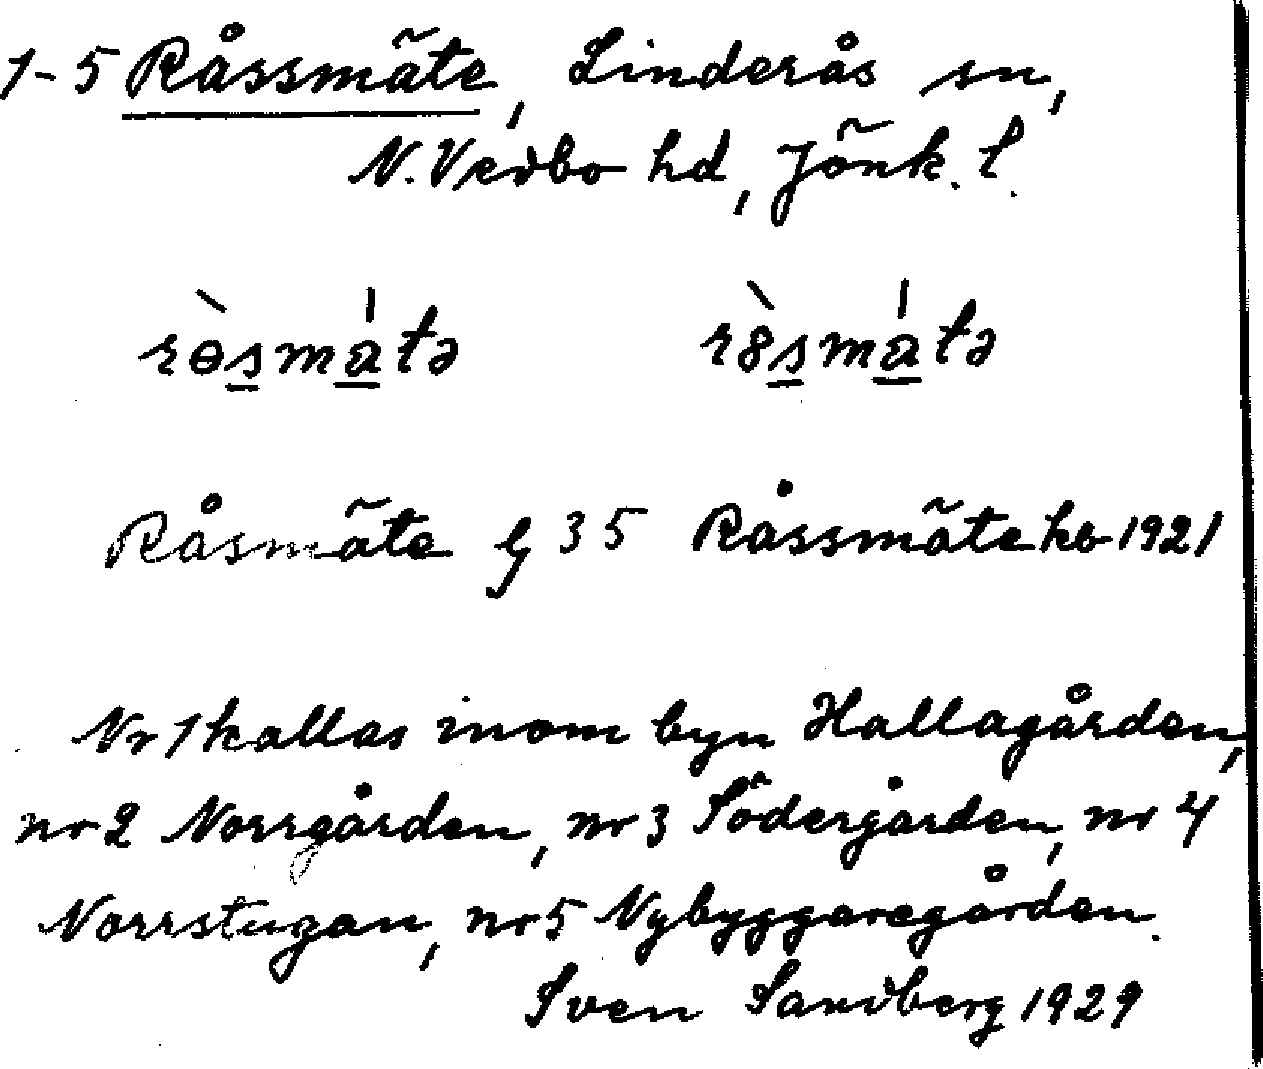 1-5 Råssmäte, Linderås sn,
N. Vedbo hd, Jönk. l.
rɵ̀smátə rȣ̀smátə
Råsmäte G 35 Råssmäte kb 1921
Nr 1 kallas inom byn Hallagården,
nr 2 Norrgården, nr 3 Södergården, nr 4
Norrstugan, nr 5 Nybyggaregården.
Sven Sandberg 1929